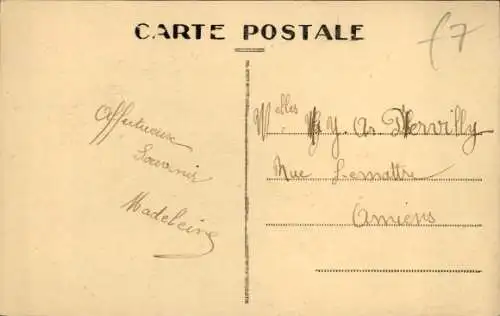 CARTE POSTALE
f7
Affectueux
Souvenir
Madeleine
Melles Y. As Dervilly
Rue Lemattre
Amiens